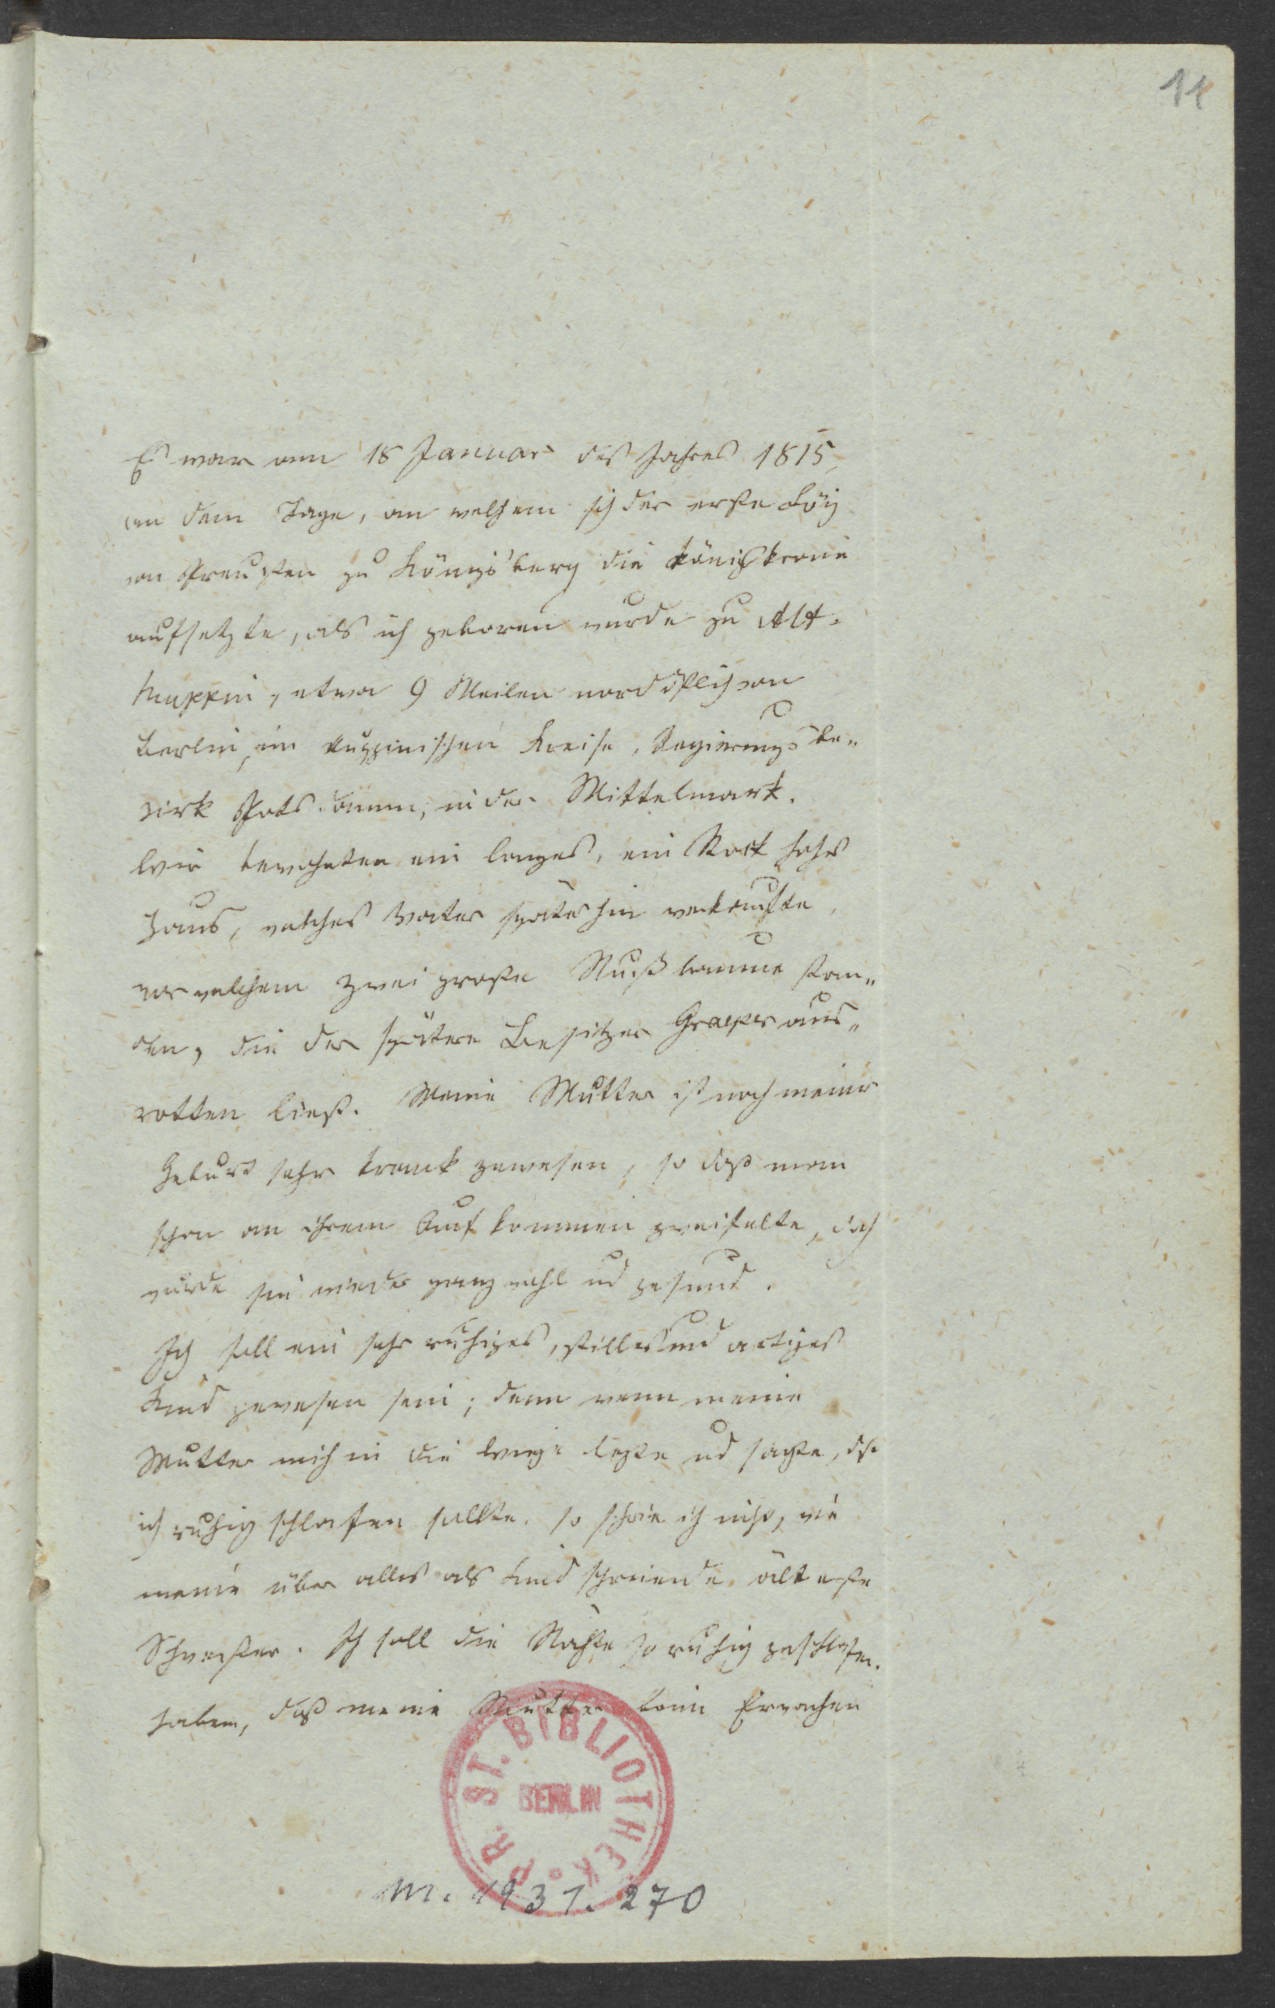 11
Es war am 18 Januar des Jahres 1815,
an dem Tage, an welchem sich der erste Kög
von Preußen zu Königsberg die Königskrone
aufsetzte, als ich geboren wurde zu Alt-
Ruppin, etwa 9 Meilen nordöstlich von
Berlin, im Ruppinischen Kreise, Regierungsbe-
zirk Potsdamm, in der Mittelmark.
Wir bewohnten ein langes, ein Stock hohes
Haus, welches Vater späterhin verkaufte,
vor welchem zwei große Nußbäume stan-
den, die der spätere Besitzer Graeper aus-
rotten ließ. Meine Mutter ist nach meiner
Geburt sehr krank gewesen, so daß man
schon an ihrem Aufkommen zweifelte, doch
wurde sie wieder ganz wohl und gesund.
Ich soll ein sehr ruhiges, stilles und artiges
Kind gewesen sein; denn wenn meine
Mutter mich in die Wiege legte ud sagte, dß
ich ruhig schlafen sollte, so schrie ich nicht, wie
meine über alles als Kind schreiende älteste
Schwester. Ich soll die Nächte so ruhig geschlafen
haben, daß meine Mutter beim Erwachen
PR. ST. BIBLIOTHEK
BERLIN
M. 1931. 270